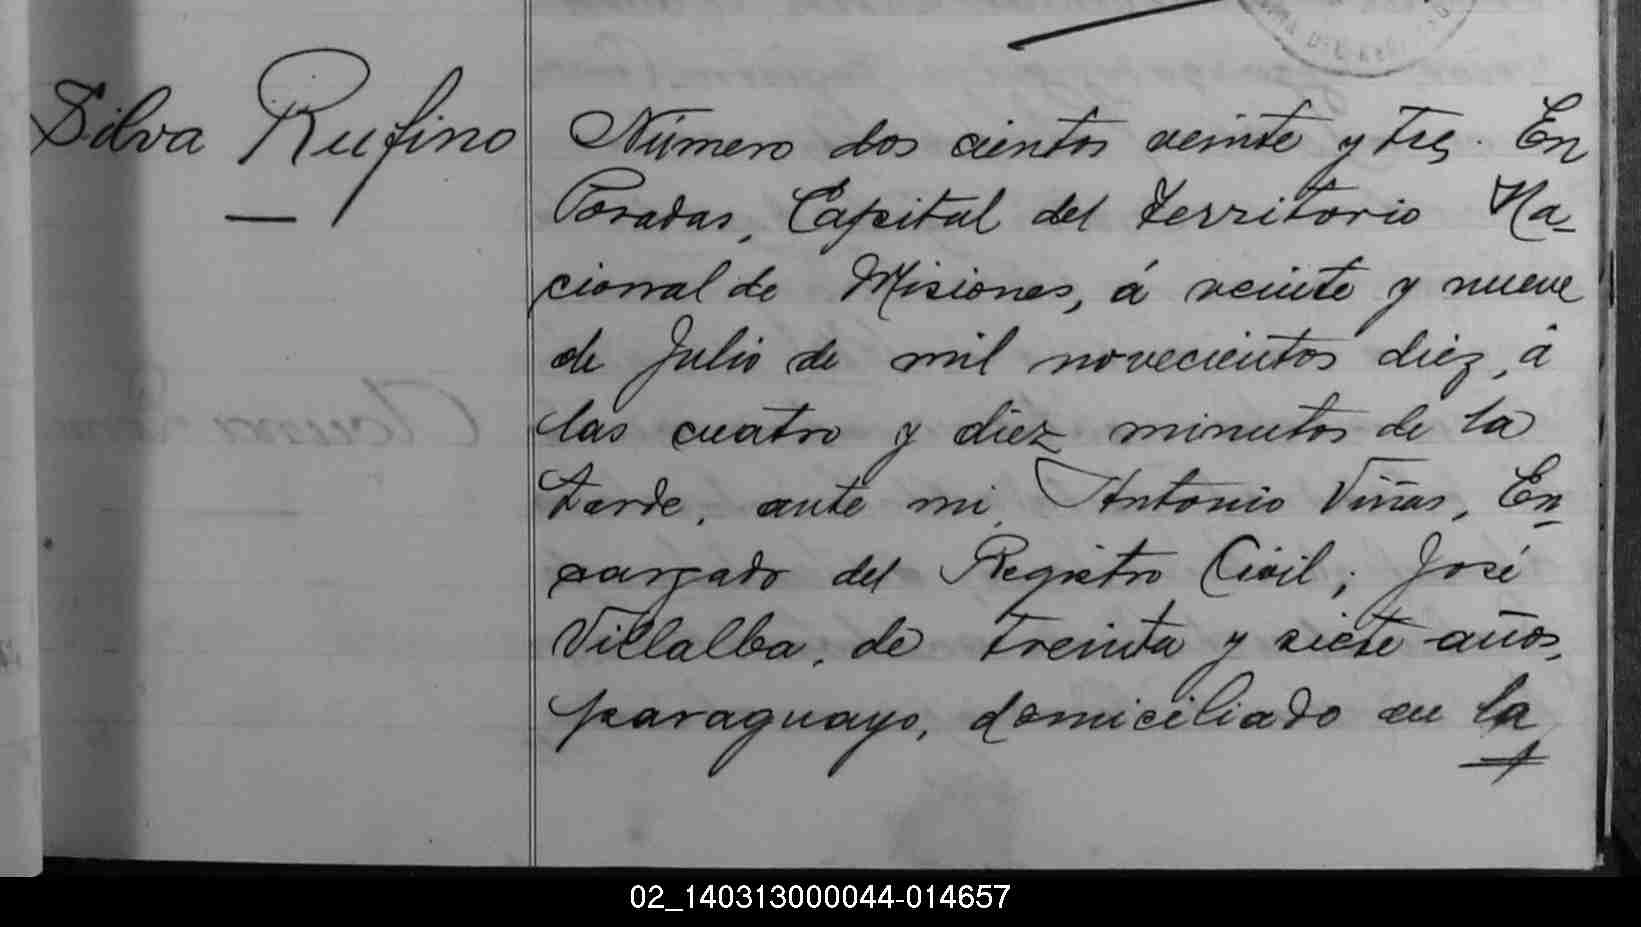 Silva Rufino
Número dos cientos veinte y tres. En
Posadas, Capital del Territorio Na-
cional de Misiones, á veinte y nueve
de Julio de mil novecientos diez, á
las cuatro y diez minutos de la
tarde, ante mi, Antonio Viñas, En-
cargado del Registro Civil; José
Villalba, de treinta y siete años,
paraguayo, domiciliado en la
02_140313000044-014657